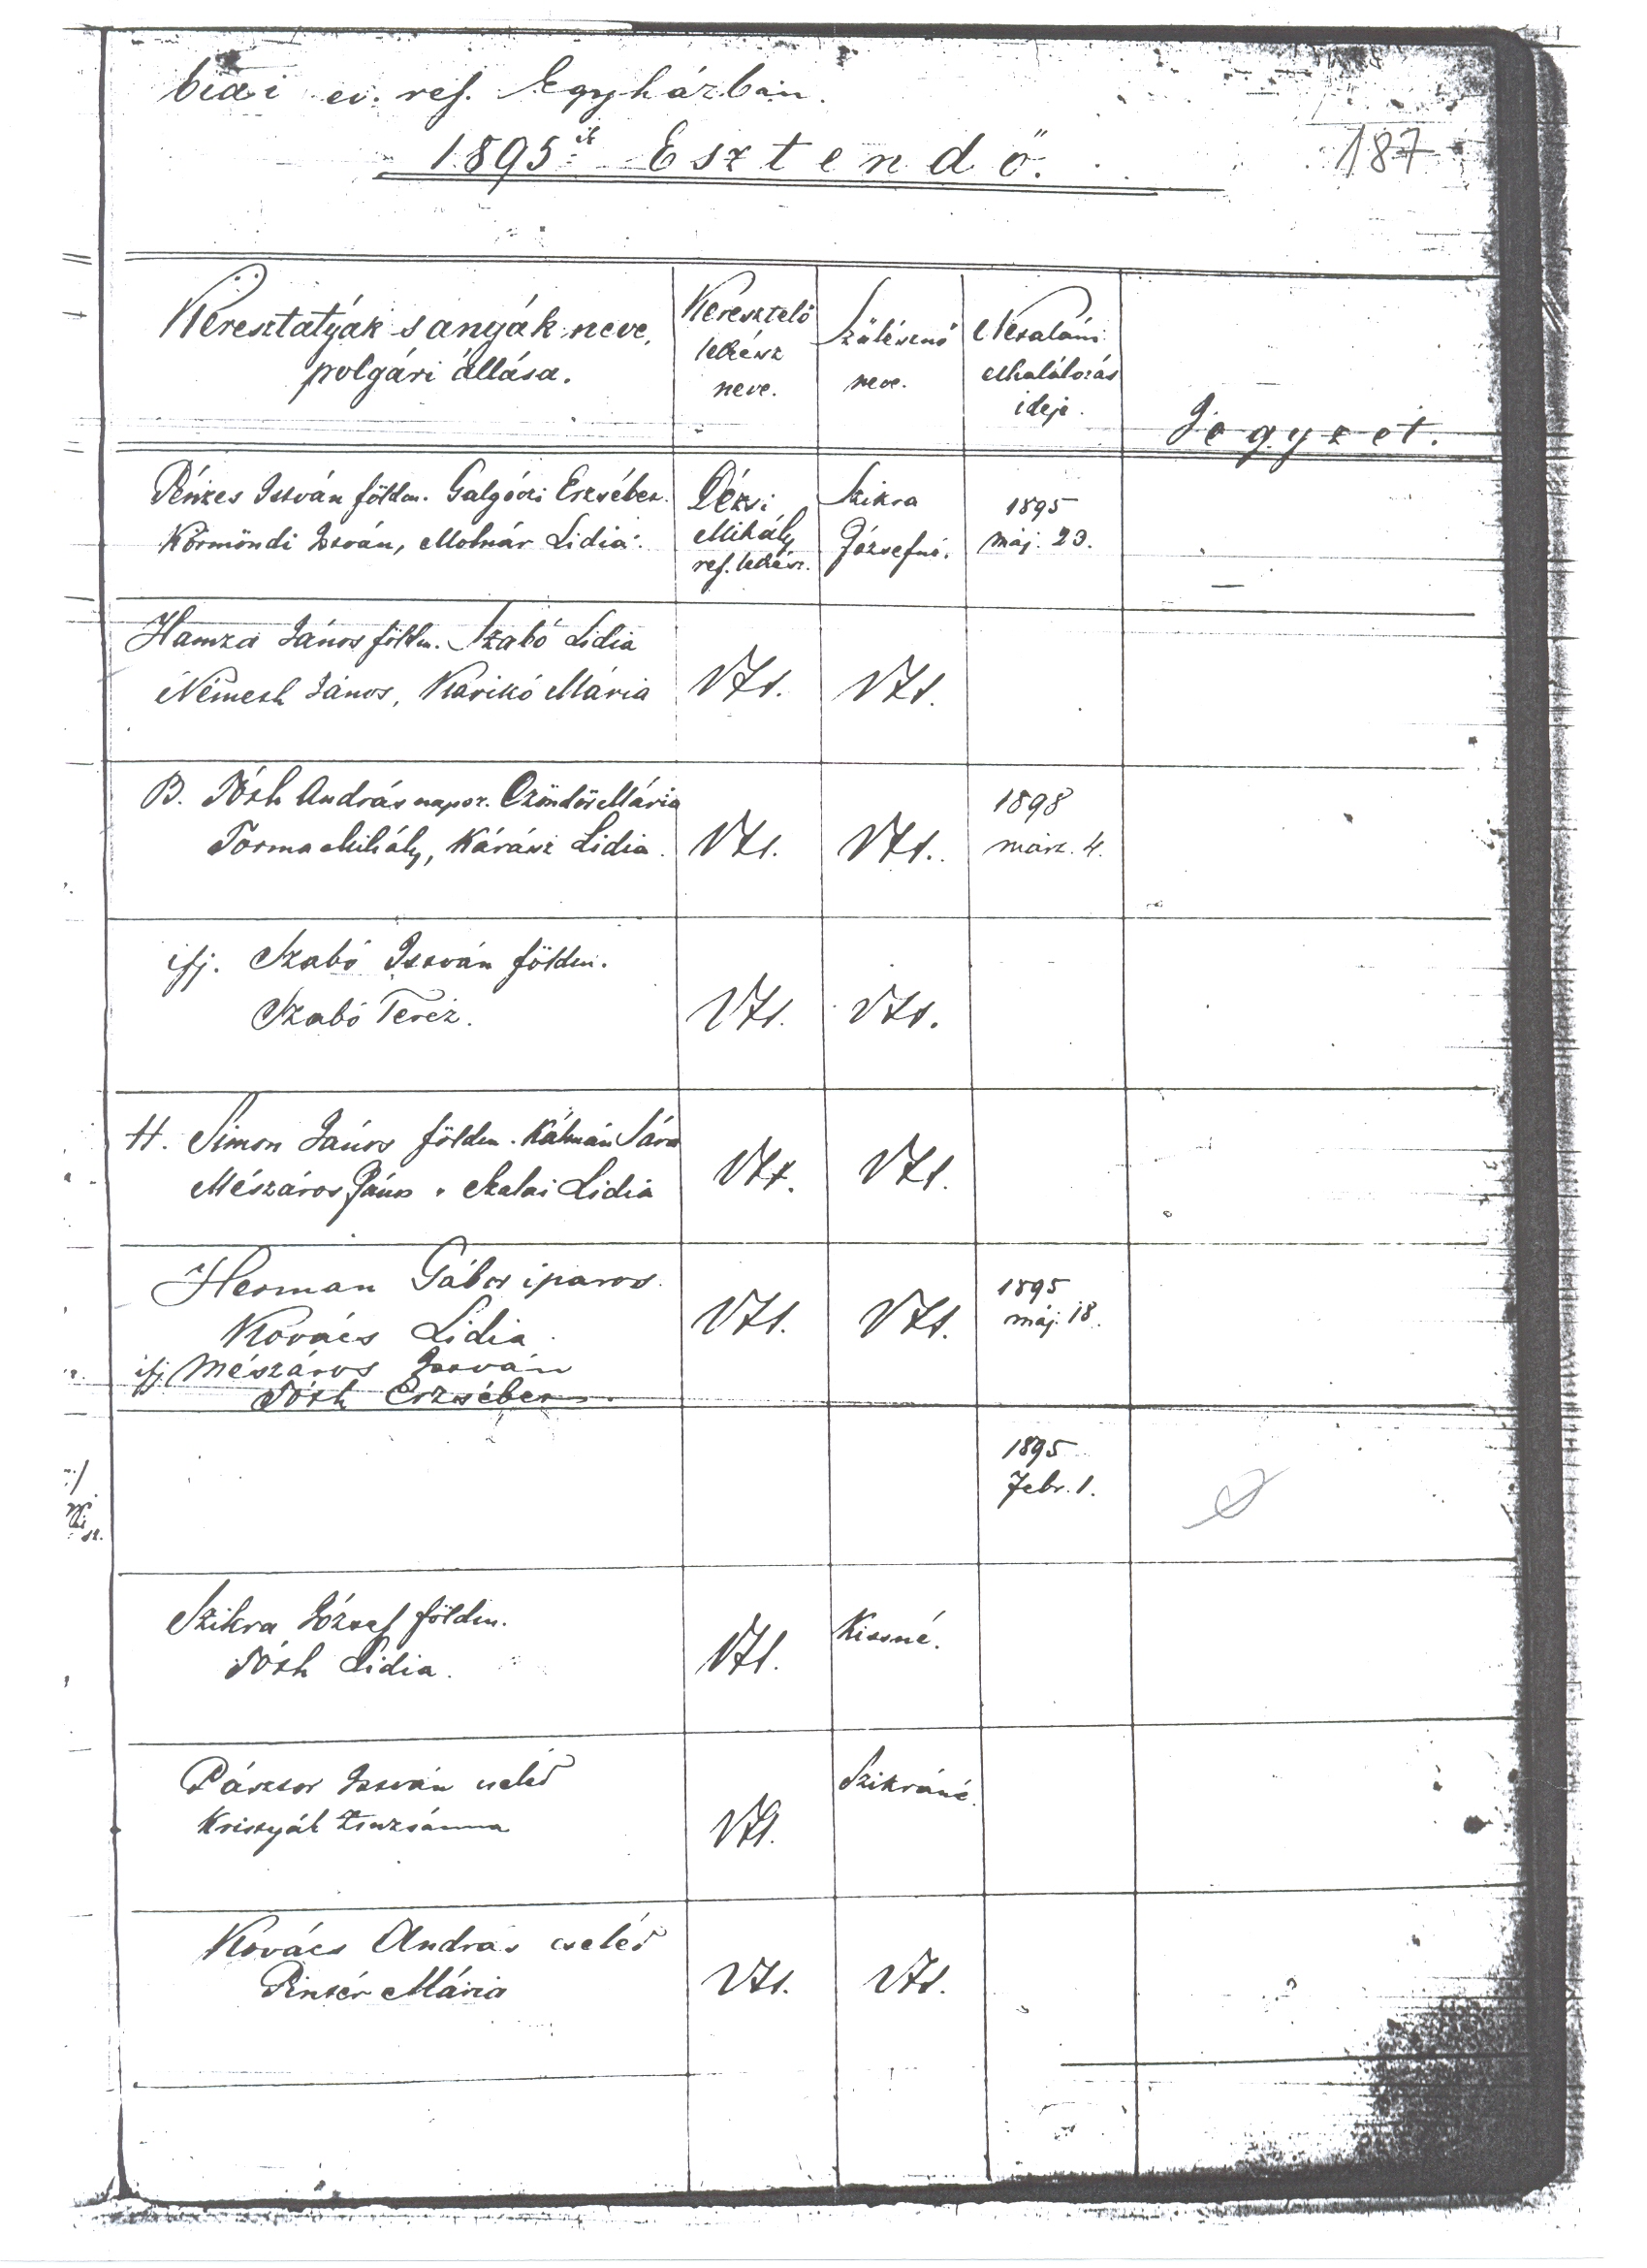 biai ev. ref. Egyházban.
1895ik Esztendő.
187
Keresztatyák s anyák neve,
polgári állása.
Keresztelő
lelkész
neve.
Szülésznő
neve.
Netaláni
elhalálozás
ideje.
Jegyzet.
Pénzes István földm. Galgóczi Erzsébet.
Körmöndi István, Molnár Lidia.
Dézsi
Mihály
ref. lelkész.
Szikra
Józsefné.
1895
máj. 23.
Hamza János földm. Szabó Lidia
Németh János, Karikó Mária
Uaz.
Uaz.
B. Tóth András napsz. Czöndör Mária
Torma Mihály, Kárász Lidia.
Uaz.
Uaz.
1898
márz. 4.
ifj. Szabó István földm.
Szabó Teréz.
Uaz.
Uaz.
H. Simon János földm. Kálmán Sára
Mészáros János, Szalai Lidia
Uaz.
Uaz.
Herman Gábor iparos.
Kovács Lidia.
ifj. Mészáros István
Tóth Erzsébet.
Uaz.
Uaz.
1895
máj. 18.
1895
Febr. 1.
Szikra József földm.
Tóth Lidia.
Uaz.
Kissné.
Pásztor István cseléd
Kristyák Zsuzsánna
Uaz.
Szikráné.
Kovács András cseléd
Pintér Mária
Uaz.
Uaz.